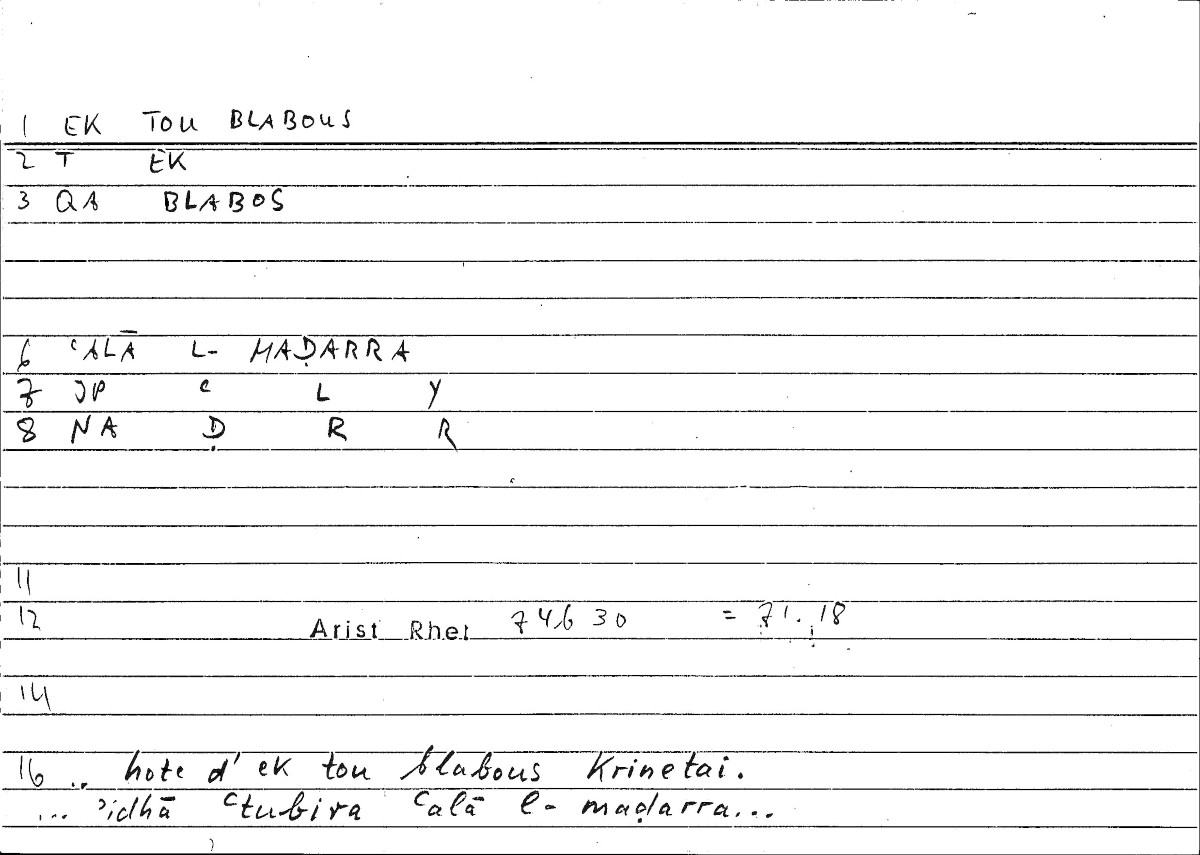 1 EK TOU BLABOUS
2 T EK
3 QA BLABOS
6 ʿALĀ L- MAḌARRA
7 JP ʿ L Y
8 NA Ḍ R R
11
12 Arist Rhet 74b 30 = 71.18
14
16 .. hote d' ek tou blabous krinetai.
... ʾidhā ʿtubira ʿalā l- maḍarra...